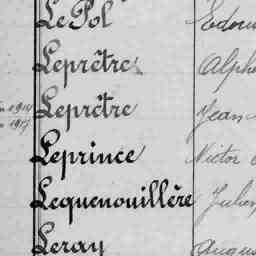 Le Pol
Leprêtre Alph
Leprêtre Jean
Leprince Victor
Lequenouillère Julien
Leray Augus